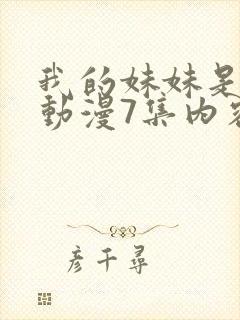 我的妹妹是
動漫7集內容
彦千尋